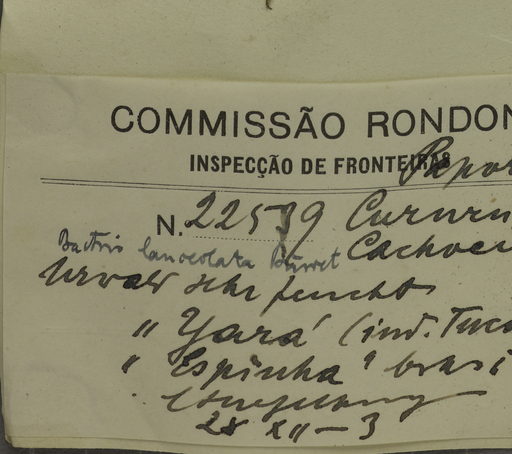 COMMISSÃO RONDON
INSPECÇÃO DE FRONTEIRAS
N. 22539 Cururu
Bactris lanceolata Burret Cachoei
Urwald sehr feucht
" Yará" (ind. Tuca
" Espinha" brasi
28 XII - 3